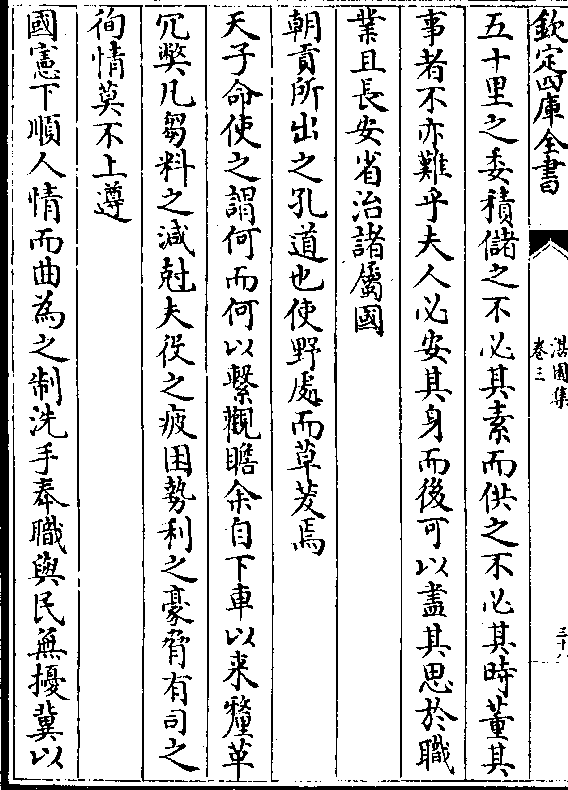 欽定四庫全書
湛園集
卷三
五十里之委積儲之不必其素而供之不必其時董其
事者不亦難乎夫人必安其身而後可以盡其思於職
業且長安省治諸屬國
朝貢所出之孔道也使野處而草茇焉
天子命使之謂何而何以繫觀瞻余自下車以来釐革
冗弊凡芻料之減尅夫役之疲困勢利之豪脅有司之
徇情莫不上遵
國憲下順人情而曲為之制洗手奉職與民無擾冀以